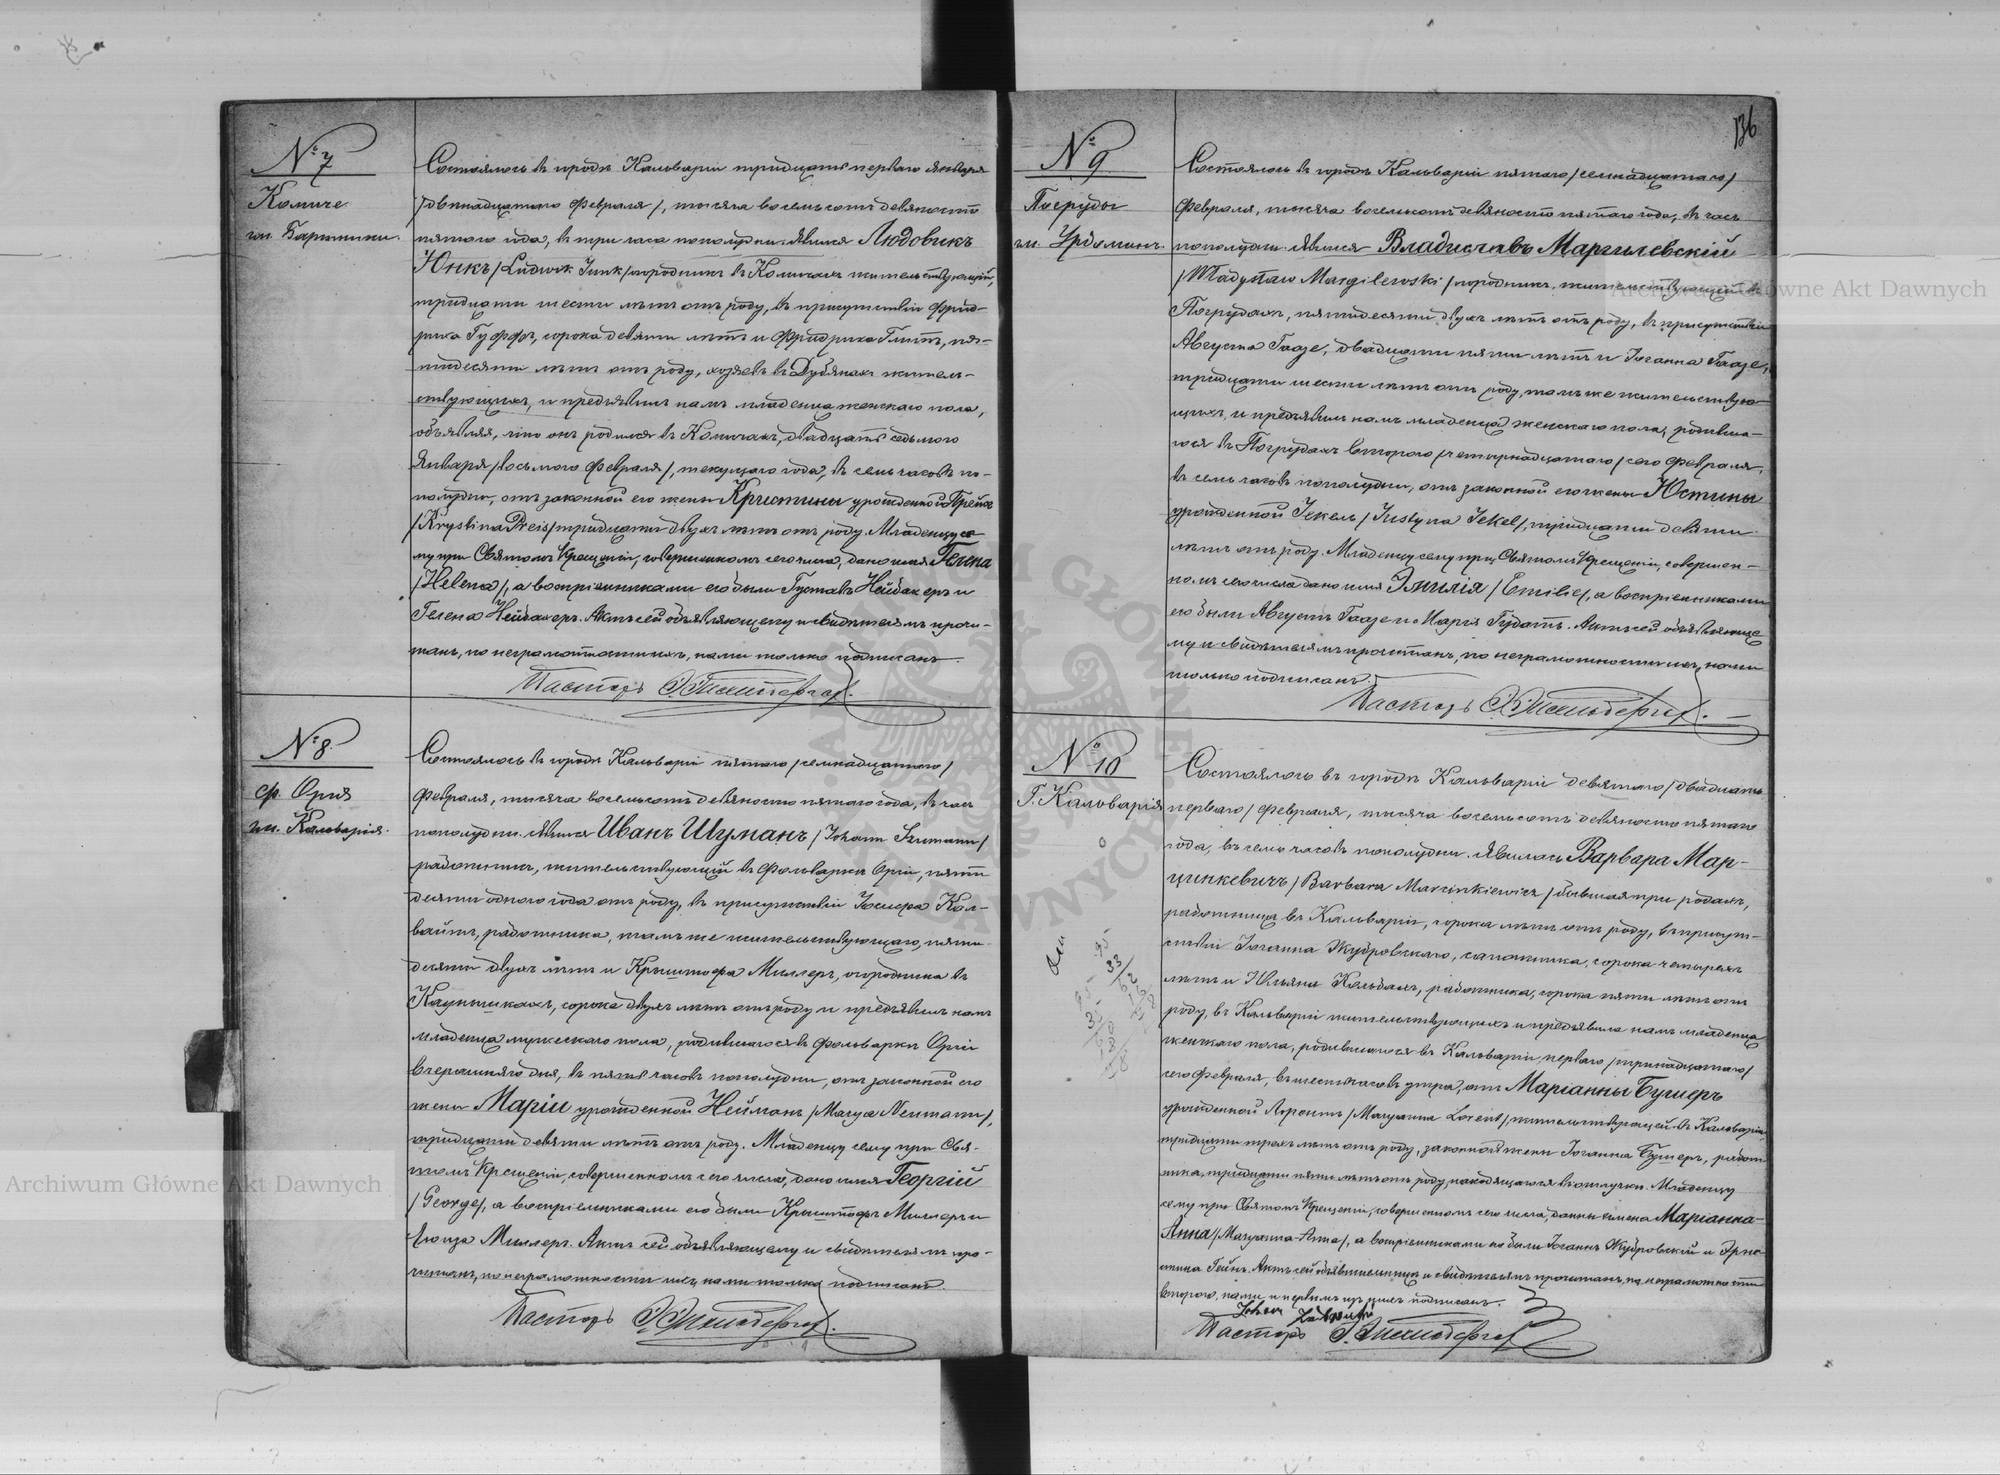 № 7
Комиче
гм. Бартники.
Состоялось въ городѣ Кальваріи тридцать перваго Января
/двѣнадцатаго Февраля/, тысяча восемьсотъ девяносто
пятаго года, въ три часа пополудни. Явился Людовикъ
Юнкъ /Ludwik Junk/ городникъ въ Комичахъ жительствующій,
тридцати шести лѣтъ отъ роду, въ присутствіи Фрид-
риха Гуффъ, сорока девяти лѣтъ и Фридриха Глитъ, пя-
тидесяти лѣтъ отъ роду, хозяевъ въ Дубянахъ житель-
ствующихъ, и предъявилъ намъ младенца женскаго пола,
объявляя, что онъ родился въ Комичахъ, двадцать седьмого
Января /восьмого Февраля/, текущаго года, въ семь часовъ по-
полудни, отъ законной его жены Кристины урожденной Прейсъ
/Krystina Preis/ тридцати двухъ лѣтъ отъ роду. Младенцу се-
му при Святомъ Крещеніи, совершенномъ сего числа, дано имя Гелена
/Helena/, а воспріемниками его были Густавъ Нейбахеръ и
Гелена Нейбахеръ. Актъ сей объявляющему и свидѣтелямъ прочи-
танъ, по неграмотности ихъ, нами только подписанъ.
Пасторъ
№ 8.
ф. Орія
гм. Кальварія.
Состоялось въ городѣ Кальваріи пятаго /семнадцатаго/
Февраля, тысяча восемьсотъ девяносто пятаго года, въ часъ
пополудни. Явился Иванъ Шуманъ /Johann Szumann/
работникъ, жительствующій въ фольваркѣ Оріи, пяти
десяти одного года отъ роду, въ присутствіи Іосифа Кал-
вайтъ, работника, тамъ же жительствующаго, пяти-
десяти двухъ лѣтъ и Крыштофа Миллеръ, огородника въ
сорока двухъ лѣтъ отъ роду и предъявилъ намъ
младенца мужескаго пола, родившагося въ фольваркѣ Оріи
вчерашняго дня, въ пять часовъ пополудни, отъ законной его
жены Маріи урожденной Нейманъ /Marya Neumann/,
тридцати девяти лѣтъ отъ роду. Младенцу сему при Свя-
томъ Крещеніи, совершенномъ сего числа, дано имя Георгій
/George/, а воспріемниками его были Крыштофъ Миллеръ и
Луиза Миллеръ. Актъ сей объявляющему и свидѣтелямъ про-
читанъ, по неграмотности ихъ, нами только подписанъ.
Пасторъ
136
№ 9
Погруды
гм. Урдоминъ.
Состоялось въ городѣ Кальваріи пятаго /семнадцатаго/
Февраля, тысяча восемьсотъ девяносто пятаго года, въ часъ
пополудни. Явился Владиславъ Маргилевскій
/Władysław Margilewski/ городникъ, жительствующій въ
Погрудахъ, пятидесяти двухъ лѣтъ отъ роду, въ присутствіи
Августа Гаазе, двадцати пяти лѣтъ и Іоганна Гаазе,
тридцати шести лѣтъ отъ роду, тамъ же жительствую-
щихъ, и предъявилъ намъ младенца женскаго пола, родивша-
гося въ Погрудахъ второго /четырнадцатаго/ сего Февраля,
въ семь часовъ пополудни, отъ законной его жены Юстины
урожденной Іекель /Justyna Jekel/, тридцати девяти
лѣтъ отъ роду. Младенцу сему при Святомъ Крещеніи, совершен-
номъ сего числа дано имя Эмилія /Emilie/, а воспріемниками
его были Августъ Гаазе и Марія Гудатъ. Актъ сей объявляюще-
му и свидѣтелямъ прочитанъ, по неграмотности ихъ, нами
только подписанъ.
Пасторъ
№ 10
Г. Кальварія
Состоялось въ городѣ Кальваріи девятаго /двадцать
перваго/ Февраля, тысяча восемьсотъ девяносто пятаго
года, въ семь часовъ пополудни. Явилась Варвара Мар-
цинкевичъ /Barbara Marcinkiewicz/ бывшая при родахъ,
работница въ Кальваріи, сорока лѣтъ отъ роду, въ присут-
ствіи Іоганна Жубровскаго, сапожника, сорока четырехъ
лѣтъ и Юльяна Кальбахъ, работника, сорока пяти лѣтъ отъ
роду, въ Кальваріи жительствующихъ и предъявила намъ младенца
женскаго пола, родившагося въ Кальваріи, перваго /тринадцатаго/
сего Февраля, въ шесть часовъ утра, отъ Маріанны Бушеръ
урожденной Лорентъ /Maryanna Lorent/, жительствующей въ Кальваріи,
тридцати трехъ лѣтъ отъ роду, законной жены Іоганна Бушеръ, работ-
ника, тридцати пяти лѣтъ отъ роду, находящагося въ отлучкѣ. Младенцу
сему при Святомъ Крещеніи, совершенномъ сего числа, даны имена Маріанна-
Анна /Maryanna-Anna/, а воспріемниками его были Іоганнъ Жубровскій и Эрне-
стина Гейнъ. Актъ сей объявительницѣ и свидѣтелямъ прочитанъ, по неграмотности
второго, нами и первымъ изъ нихъ подписанъ.
Johan
Пасторъ
Archiwum Główne Akt Dawnych
Archiwum Główne Akt Dawnych